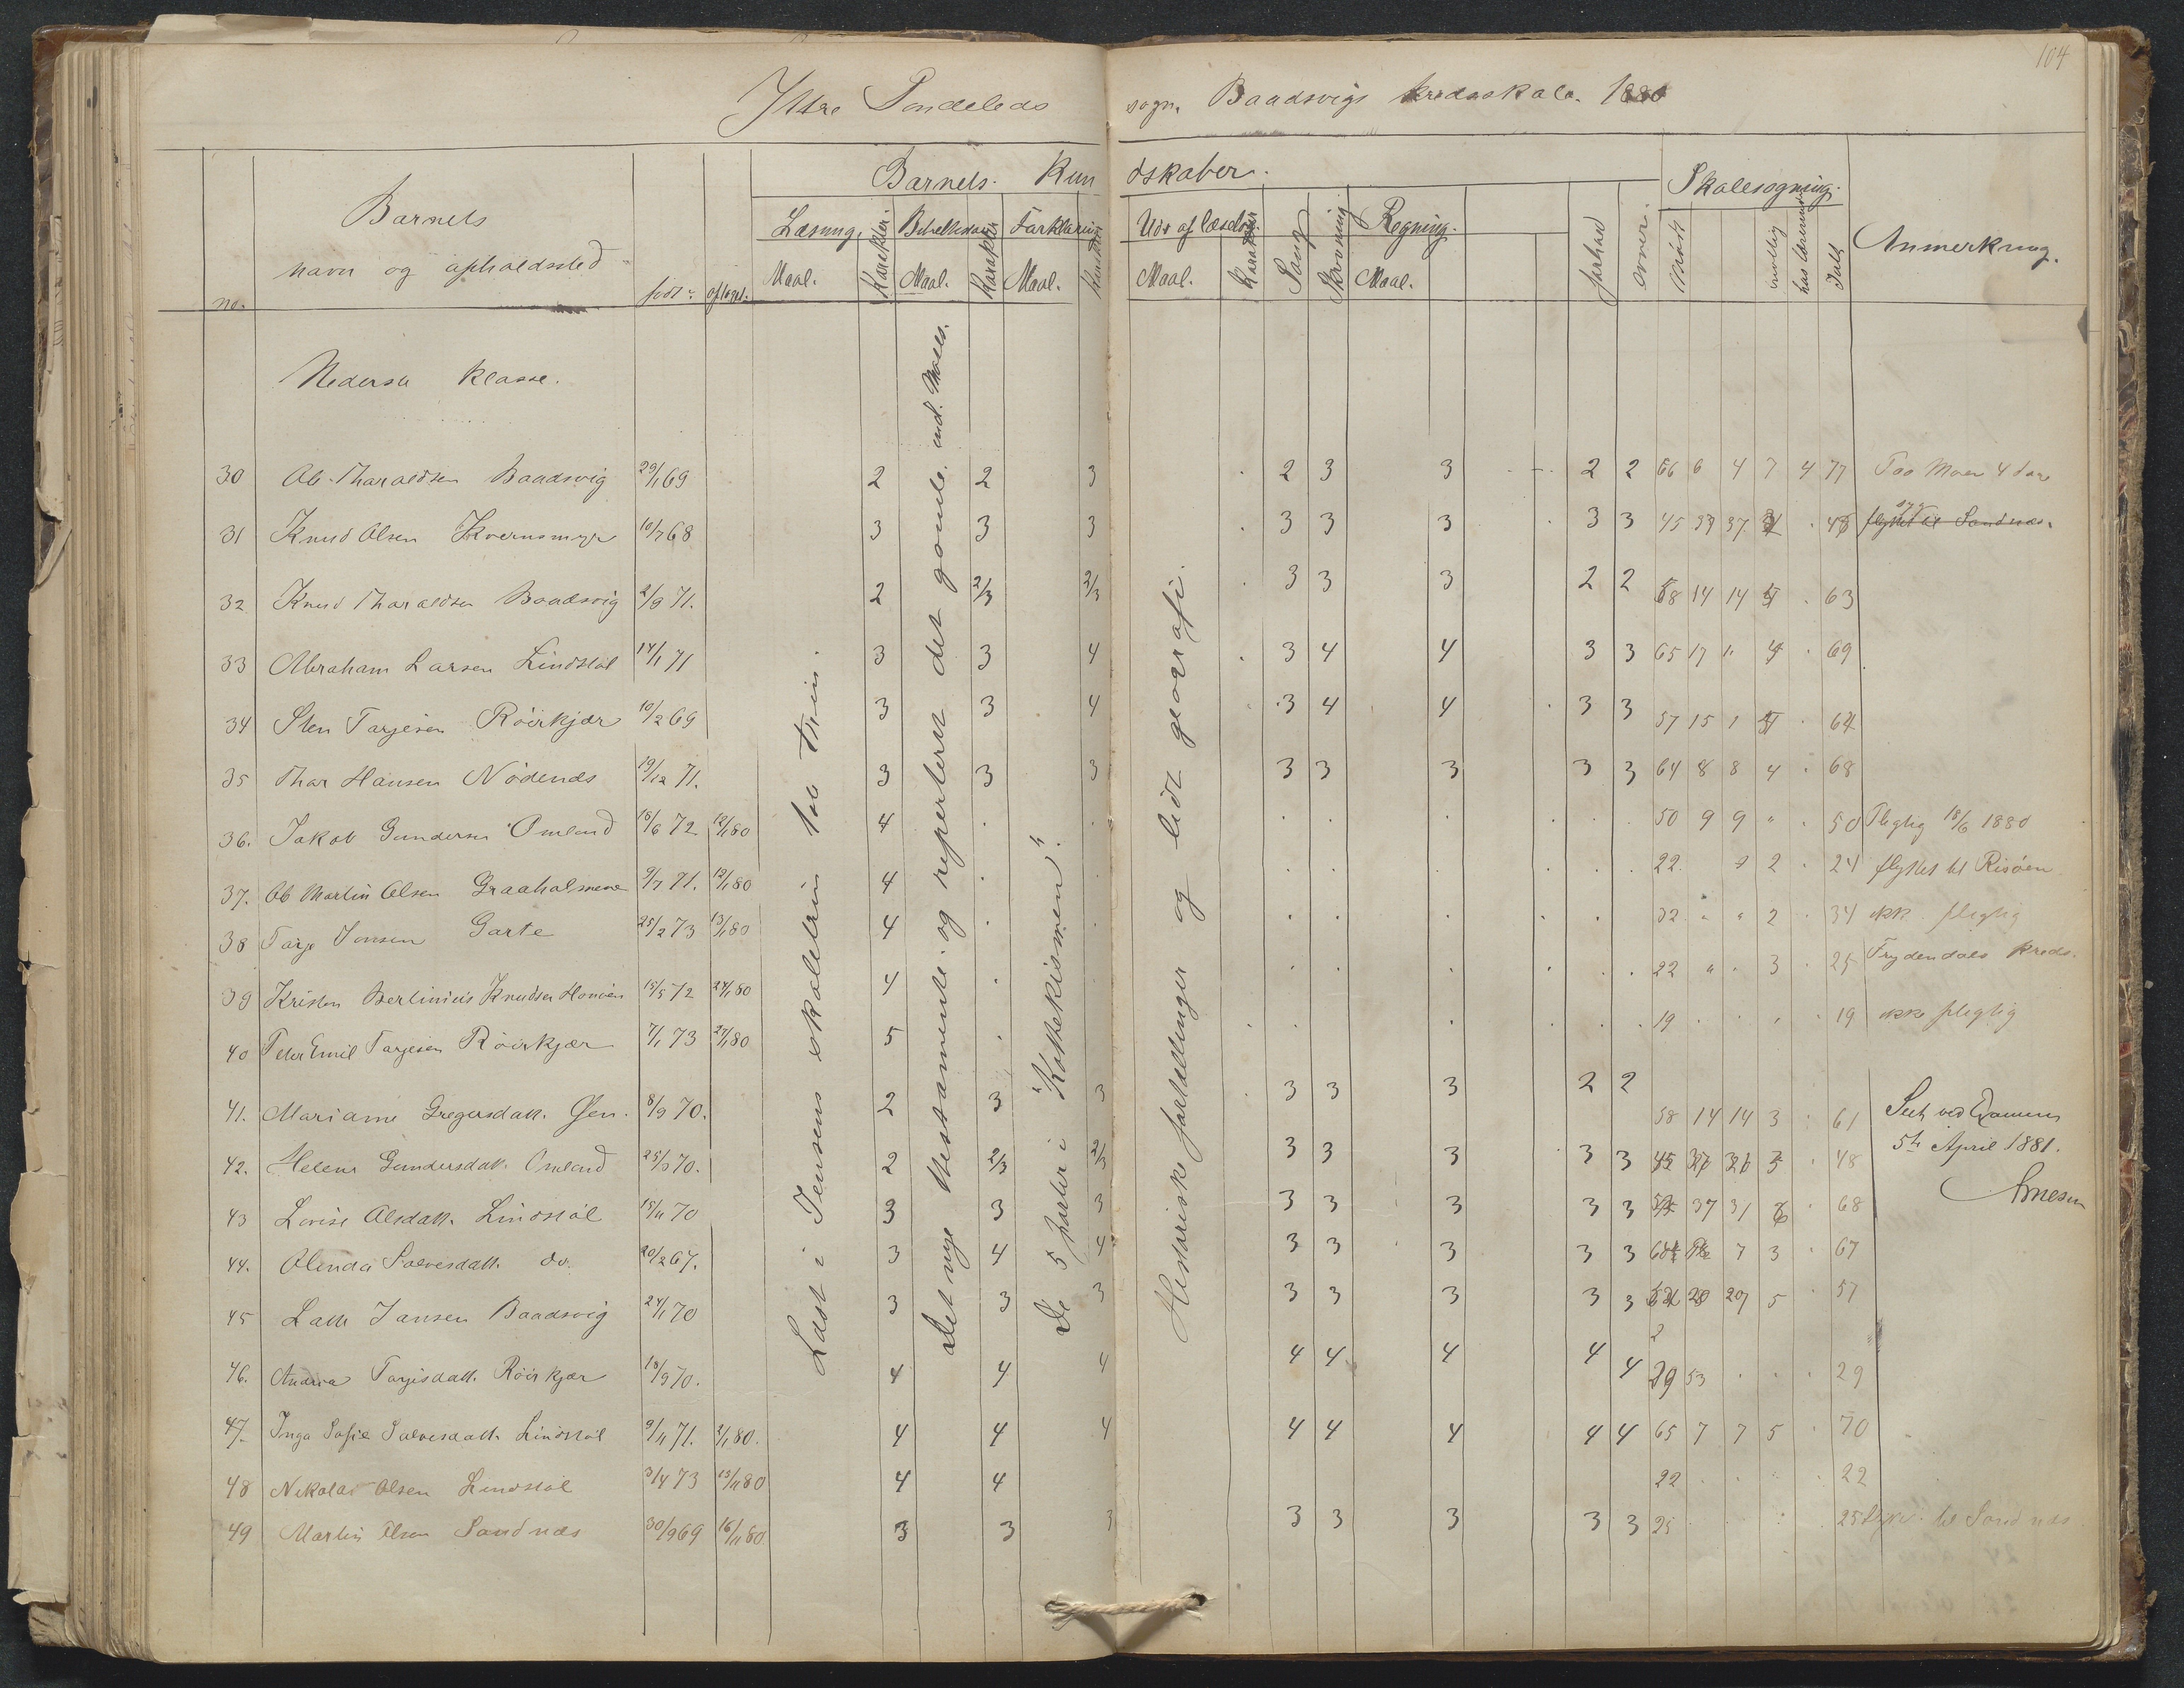 104
Ydre Søndeleds sogn. Baadsvigs kredsskole. 1880
Barnets Kundskaber.
Skolesøgning.
Barnets navn og opholdssted
no.
født
optaget.
Læsning.
Bibelhistorie
Forklaring
Maal.
Karakter.
Maal.
Karakter
Maal.
Karakter
Udv. af læsebog.
Maal.
Karakter
Sang
Skrivning
Regning.
Maal.
forhold
evner.
mødt
lovlig
Ialt
Anmerkning.
Nederste klasse.
Læst i Jensens
Det nye testamente og repeteret det gamle
De 5 parter i "Kattekismen".
Historiske fortællinger og lidt geografi.
30 Ole Tharaldsen Baadsvig 29/1 69 2 2 3 2 3 3 2 2 66 6 4 7 4 77
31 Knud Olsen Kvernsmyr 10/7 68 3 3 3 3 3 3 3 3 45 37 flyttet til Sandnæs.
32 Knud Tharaldsen Baadsvig 2/9 71. 2 2/3 2/3 3 3 3 2 2 58 14 14 63
33 Abraham Larsen Lindstøl 14/1 71 3 3 4 3 4 4 3 3 65 17 69
34 Sten Tarjesen Röirkjær 10/2 69 3 3 4 3 4 4 3 3 57 15 1
35 Thor Hansen Nödenes 19/12 71. 3 3 3 3 3 3 3 3 64 8 8 4 68
36. Jakob Gundersen Omland 18/6 72 12/1 80 4 50 9 9 " 50 Pligtig 18/6 1880
37. Ole Martin Olsen Graaholmene 9/7 71. 12/1 80 4 22. 2 24 flyttet til Risöen
38 Tarje Jonsen Garte 25/2 73 13/1 80 4 32 " " 2 34 ikke pligtig
39 Kristen Berlinius Knudsen 15/5 72 24/1 80 4 22 " . 3 25 Frydendals kreds.
40 Peter Emil Tarjesen Röirkjær 7/1 73 27/1 80 5 19 19 ikke pligtig
41. Mariane Gregersdatt. Öen. 8/9 70. 2 3 3 3 3 3 2 2 58 14 14 3 61
Seet ved Examen
5te April 1881.
42. Helene Gundersdatt. Omland 25/9 70. 2 2/3 2/3 3 3 3 3 3 45 48
43 Lovise Olsdatt. Lindstøl 15/11 70 3 3 3 3 3 3 3 3 37 31 68
44. Olenda Salvesdatt. do. 20/2 67. 3 4 4 3 3 3 3 3 7 3 67
45 Jansen Baadsvig 24/1 70 3 3 3 3 3 3 3 3 20 5 57
46. Andrea Tarjesdatt. Röirkjær 18/9 70. 4 4 4 4 4 4 4 4 29 53 29
47. Inga Sofie Salvesdatt. Lindstøl 9/11 71. 2/1 80. 4 4 4 4 4 4 4 4 65 7 7 5 70
48 Nikolai Olsen Lindstøl 3/4 73 15/11 80 4 4 22 22
49 Martin Olsen Sandnæs 30/9 69 16/11 80 3 3 3 3 3 3 3 3 25 25 til Sandnæs